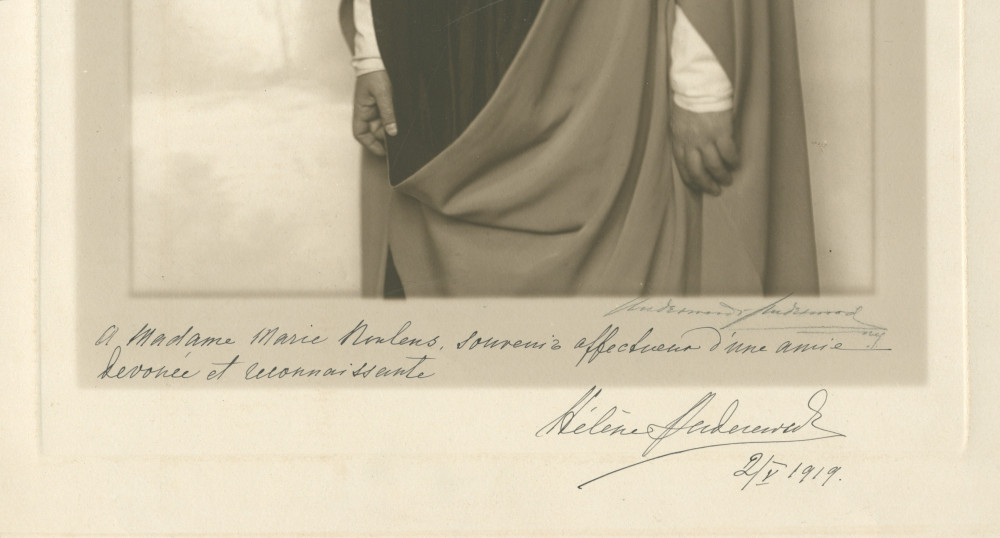 Underwood & Underwood
N.Y.
A Madame Marie souvenir affectueux d'une amie
dévouée et reconnaissante
Hélène
2/V 1919.